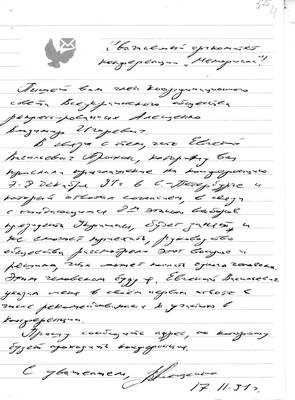 Уважаемый оргкомитет
конференции "Мемориал"!
Пишет вам член Координационного
совета Всеукраинского общества
репрессированных Алещенко
Владимир Игоревич.
В связи с тем, что Евгений
Васильевич Пронюк, которому вы
прислали приглашение на конференцию
7-8 декабря 91г в С-Петербурге и
который ответил согласием, в связи
с выборов
президента Украины, будет занят, и
не сможет приехать, руководство
общества рассмотрело этот вопрос и
решило, что может поехать один человек.
Этим человеком буду я. Евгений Васильевич
указал меня в своём первом ответе в
числе рекомендованных к участию в
конференции.
Прошу сообщить адрес, по которому
будет проходить конференция.
С уважением,
17.11.91г.